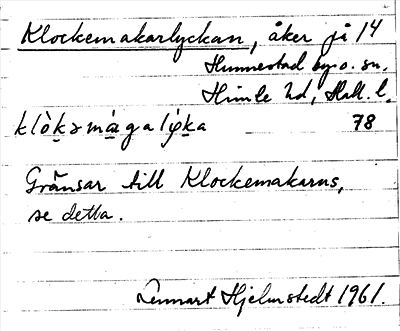 Klockemakarlyckan, åker på 14
Hunnestad by o. sn.
Himle hd, Hall. l.
klòkəmàgalỳka 78
Gränsar till Klockemakarns,
se detta.
Lennart Hjelmstedt 1961.